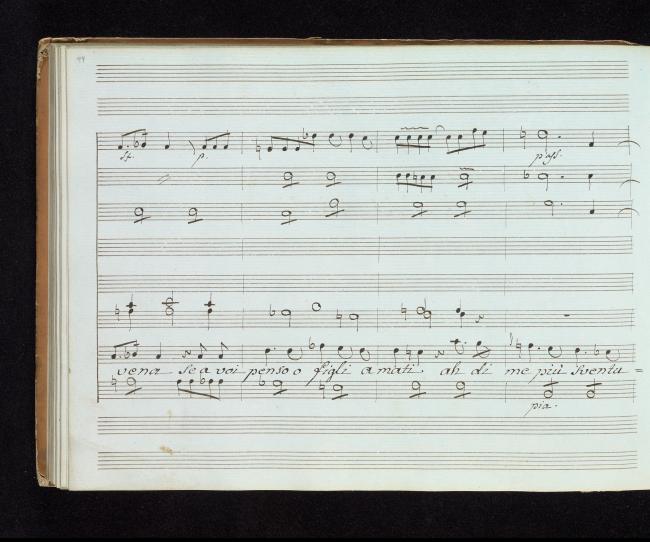 st. p. p: ass.
vena se a voi penso o figli amati ah di me più sventu =
pia.